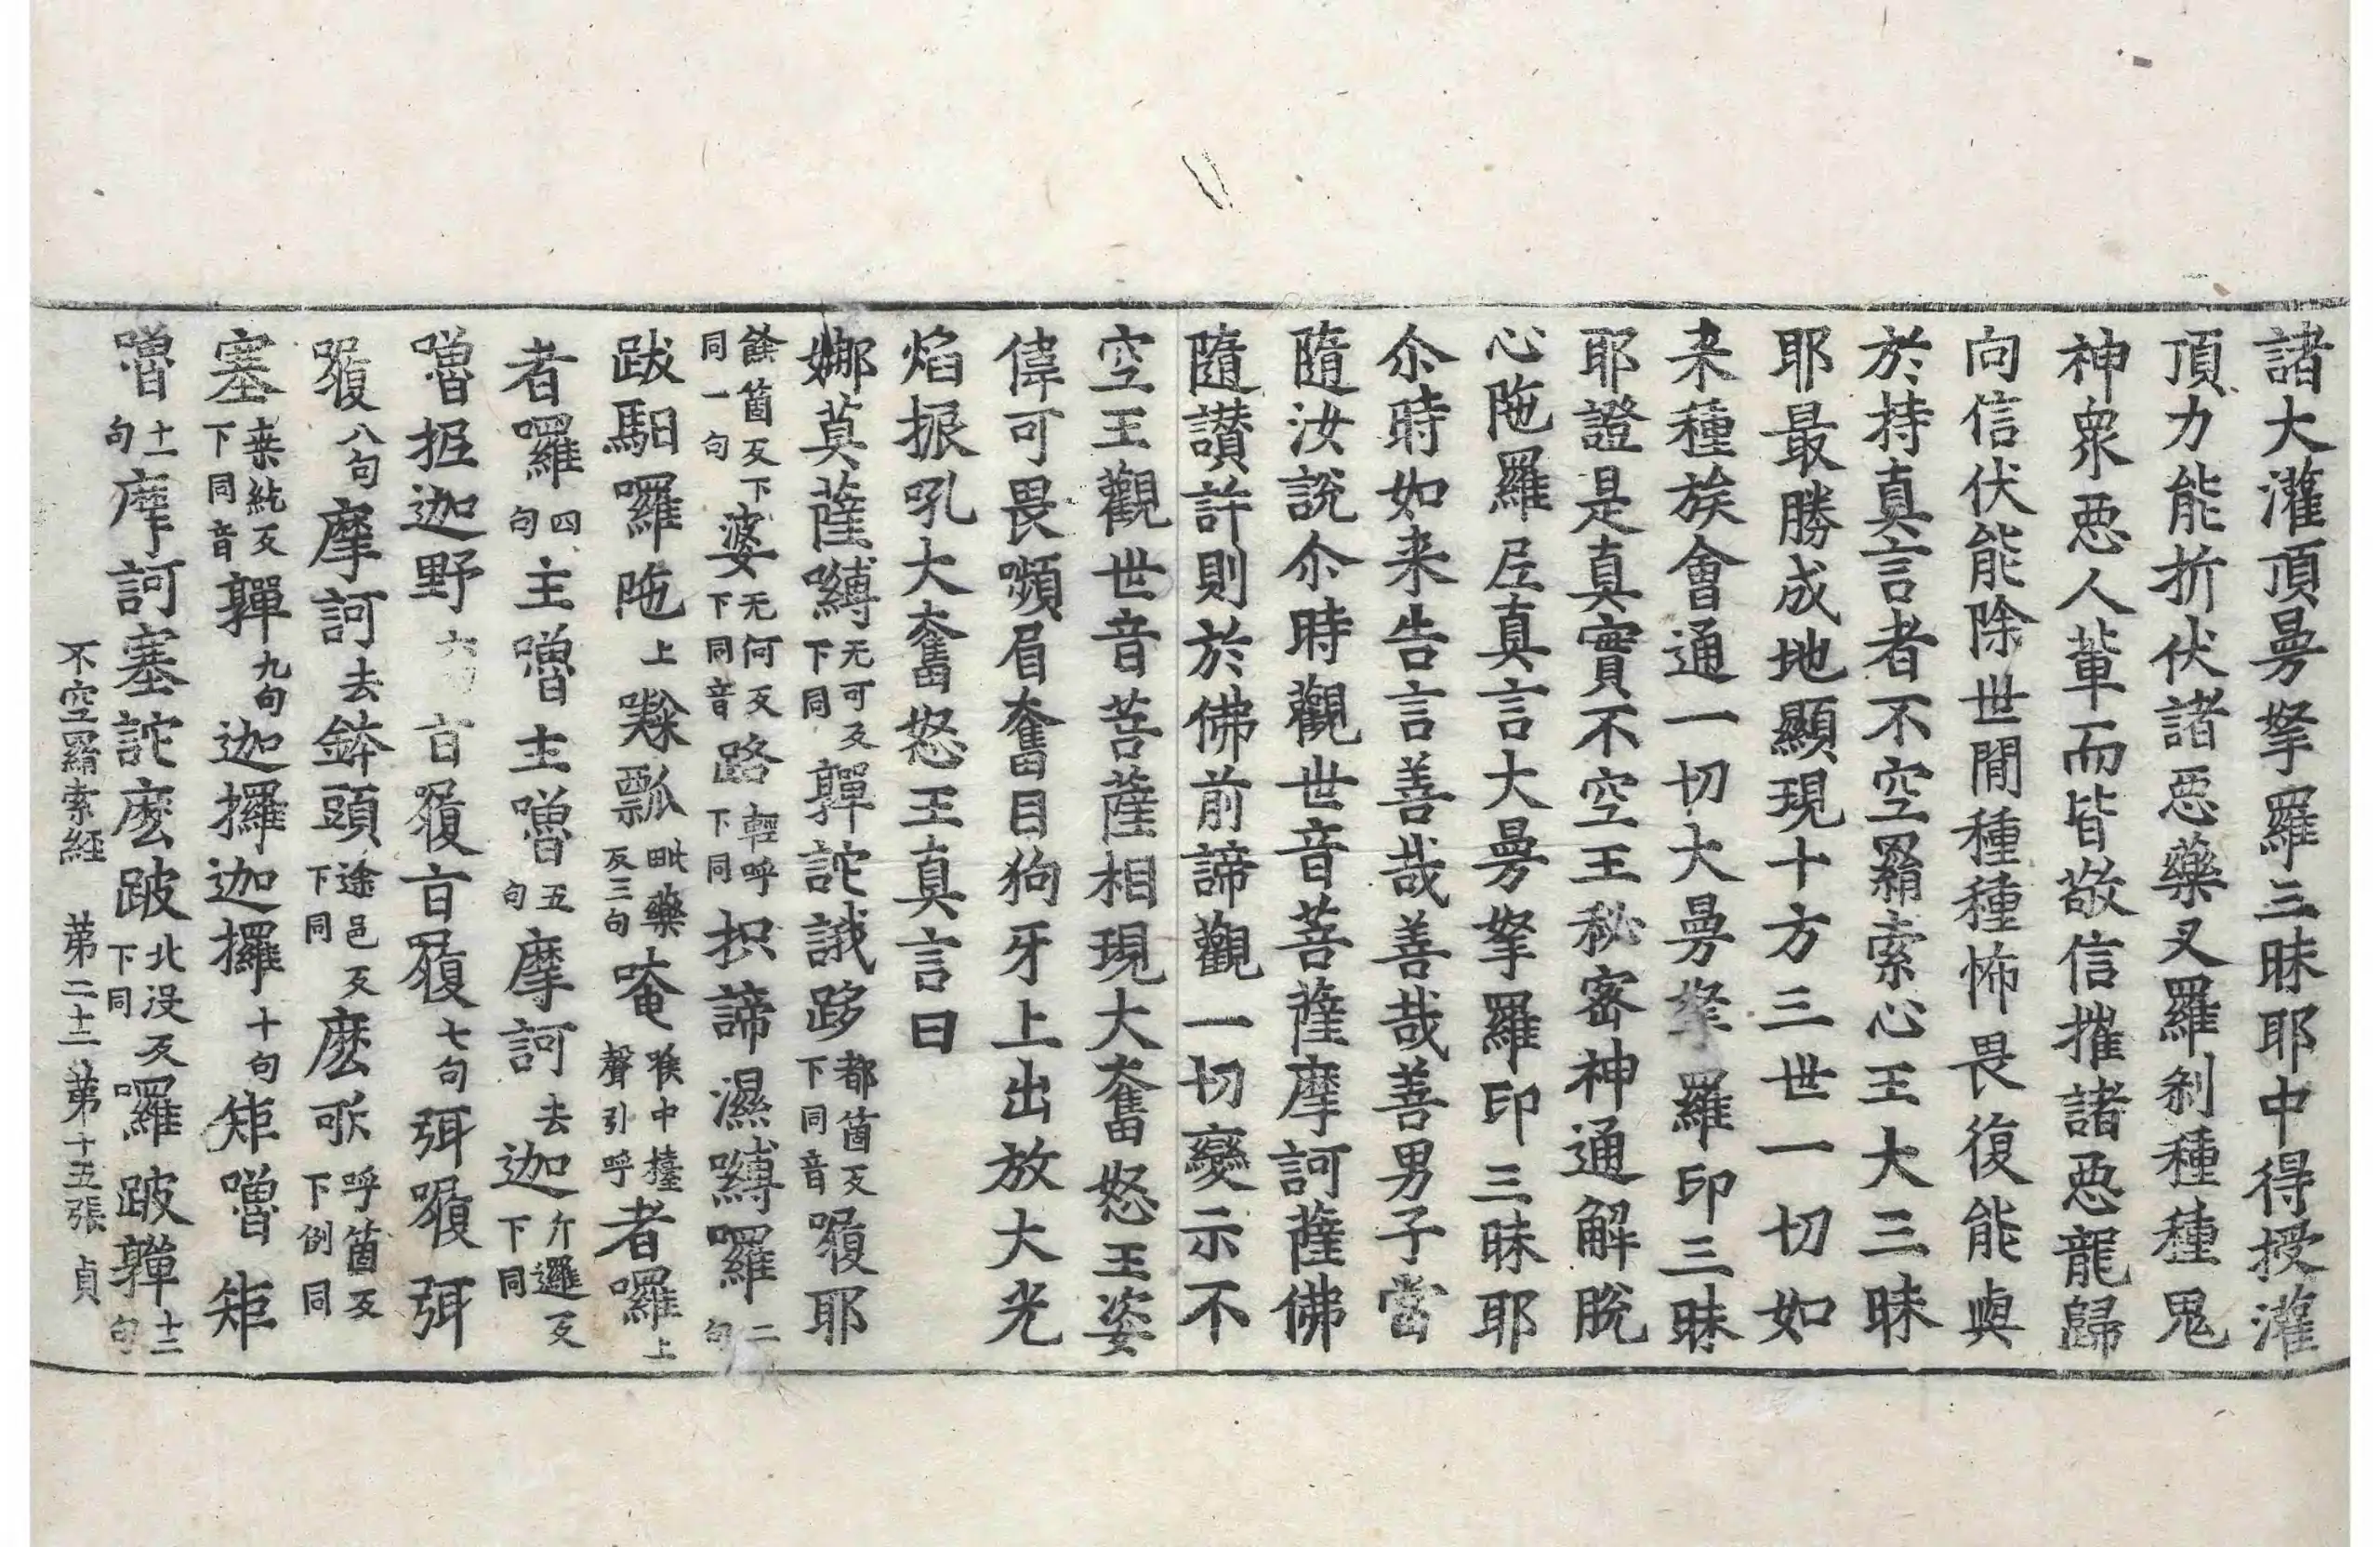 諸大灌頂曼拏羅三昧耶中得授灌
頂力能折伏諸惡藥叉羅剎種種鬼
神衆惡人輩而皆敬信摧諸惡龍歸
向信伏能除世間種種怖畏復能與
於持真言者不空羂索心王大三昧
耶最勝成地顯現十方三世一切如
来種族會通一切大曼拏羅印三昧
耶證是真實不空王秘密神通解脫
心陁羅尼真言大曼拏羅印三昧耶
尒時如来告言善哉善哉善男子當
隨汝說尒時觀世音菩薩摩訶薩佛
隨讃許則於佛前諦觀一切變示不
空王觀世音菩薩相現大奮怒王姿
偉可畏嚬眉奮目狗牙上出放大光
焰振吼大奮怒王真言曰
娜莫薩嚩无可反下同嚲詑誐跢都箇反下同音㗚耶
餘箇反下同一句婆无何反下同音路輕呼下同枳諦濕嚩囉二句
跋馹囉陁上㘑瓢毗藥反三句唵喉中擡聲引呼者囉上
者囉四句主嚕主嚕五句摩訶去迦斤邏反下同
嚕抳迦野六句㫖㗚㫖㗚七句弭㗚弭
㗚八句摩訶去鉢頭途邑反下同麽㰤呼箇反下倒同
塞桒紇反下同音嚲九句迦攞迦攞十句矩嚕矩
嚕十一句摩訶塞詑麽跛北没反下同囉跛嚲十二句
不空羂索經　第二十二　第十五張　貞